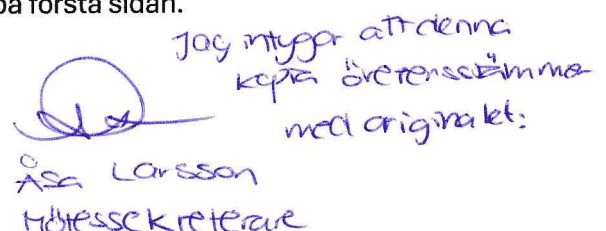 på första sidan.
Jag intygar att denna
kopia överensstämmer
med originalet:
Åsa Larsson
Mötessekreterare